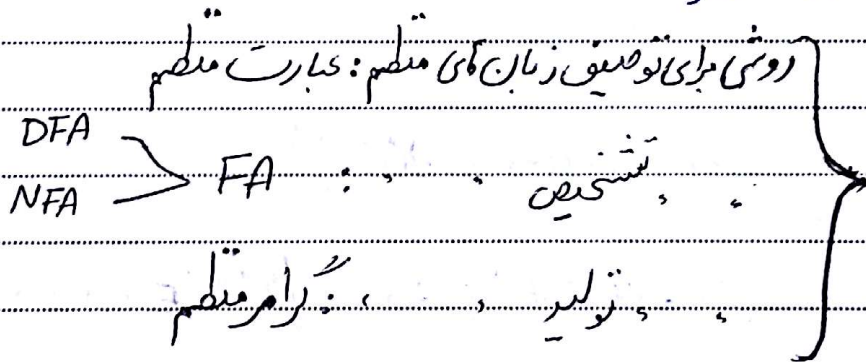 روشی برای توصیف زبان های منظم : عبارت منظم
DFA
NFA
〃 〃 تشخیص 〃 〃 : FA
〃 〃 تولید 〃 〃 : گرامر منظم